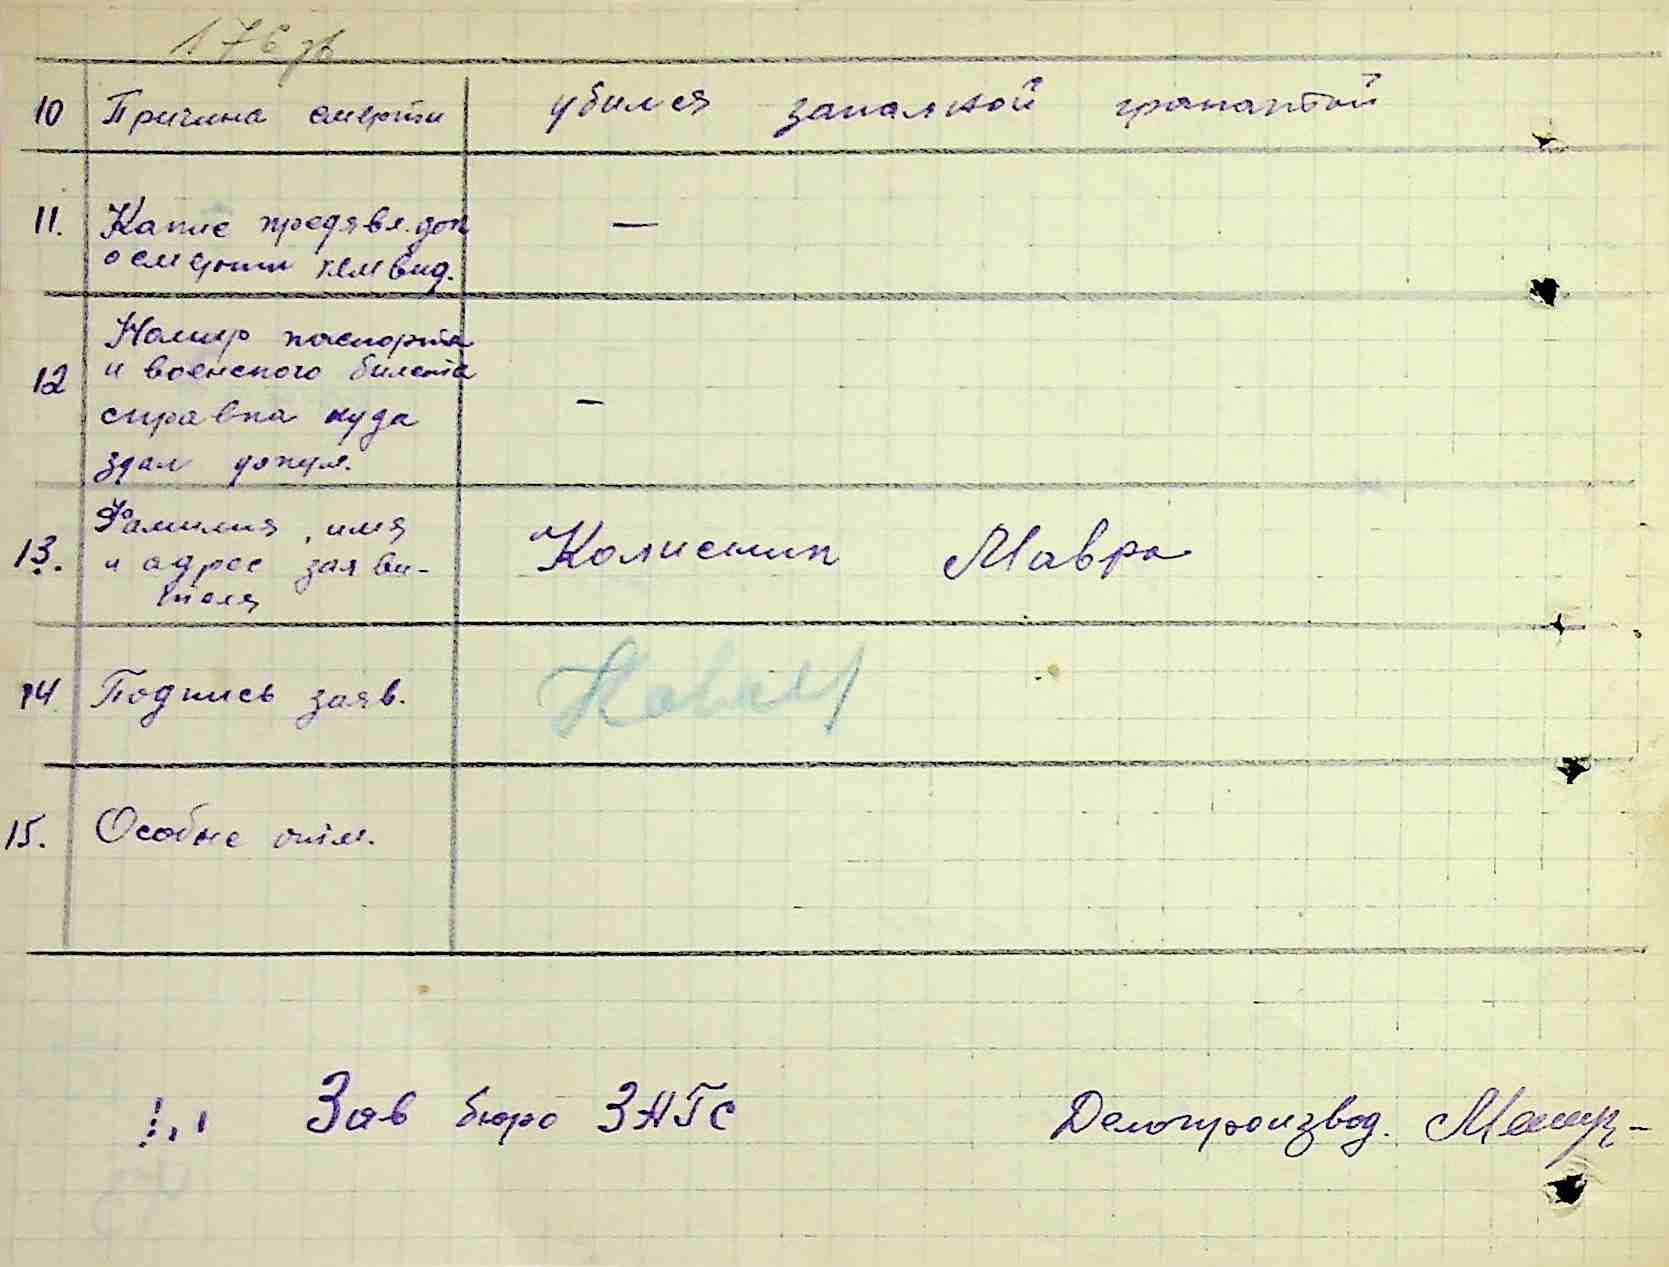 176 зв
10 Причина смерти убился запалкой гранаткой
11. Какие предявл. док
о смерти кем вид.
—
Номир паспорта
12 и военского билета
справка куда
здал докум.
–
Фамилия, имя
13. и адрес заяви-
теля
Колисник Мавра
14 Подпись заяв.
15. Особые отм.
Зав бюро ЗАГС Делопроизвод.